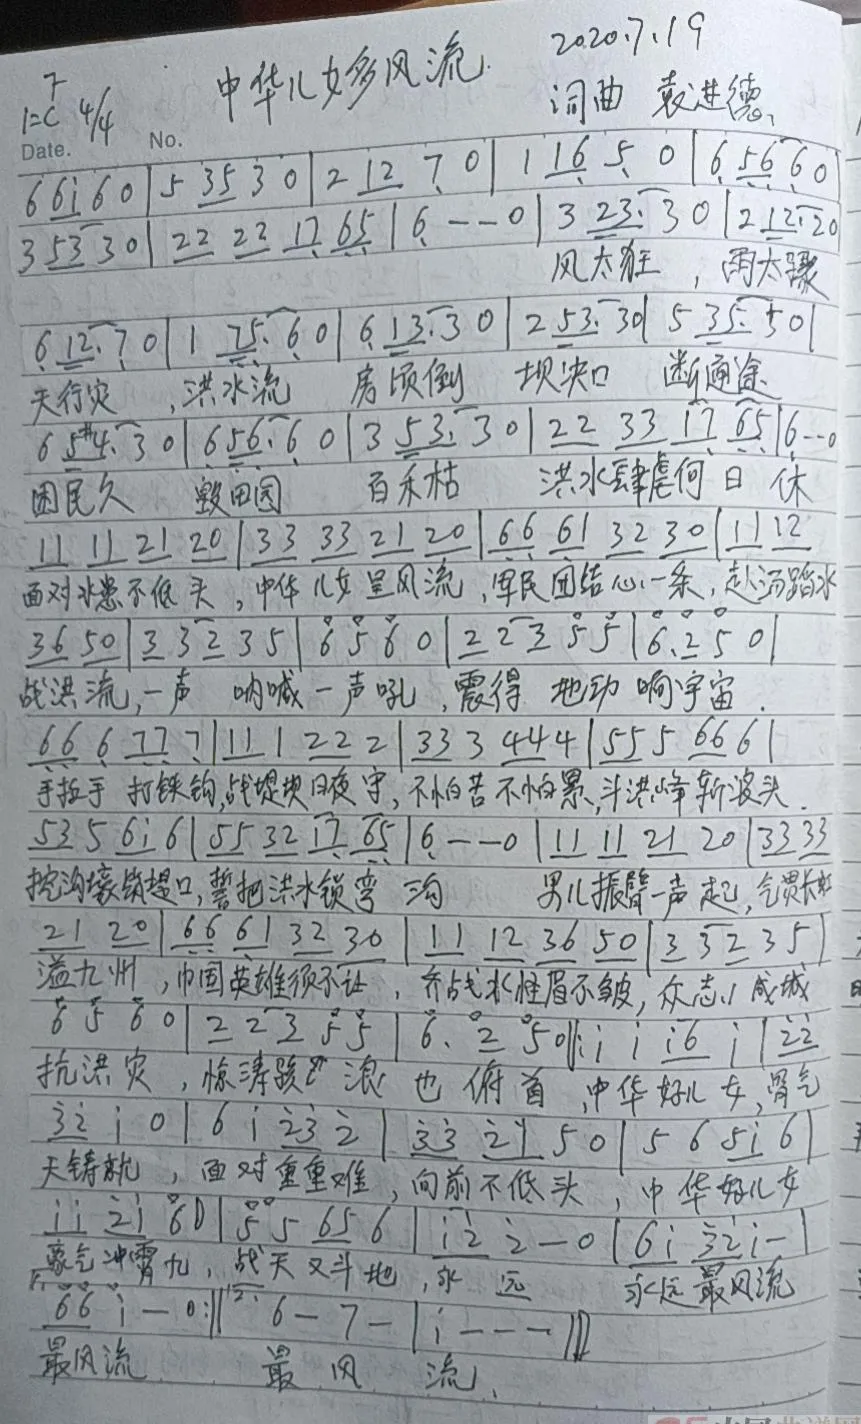 中华儿女多风流 2020.7.19
1=C 4/4 词曲 袁进德
Date. No.
6 6i 6 0 | 5 35 3 0 | 2 12 7 0 | 1 16 5 0 | 6 56 6 0
3 53 3 0 | 22 22 17 65 | 6 - - 0 | 3 23. 3 0 | 2 12. 2 0
风太狂 , 雨太骤
6 12. 7 0 | 1 75. 6 0 | 6 13. 3 0 | 2 53. 3 0 | 5 35. 5 0 |
天行灾 , 洪水流 房倾倒 坝决口 断通途
6 5#4. 3 0 | 6 56. 6 0 | 3 53. 3 0 | 22 33 17 65 | 6 - - 0
困民久 毁田园 百禾枯 洪水肆虐何日 休
11 11 21 20 | 33 33 21 20 | 66 61 32 30 | 11 12
面对水患不低头 , 中华儿女呈风流 , 军民团结心一条 , 赴汤蹈水
36 50 | 3 32 35 | 6 5 6 0 | 2 23 5 5 | 6. 2 5 0 |
战洪流 , 一声 呐喊一声吼 , 震得 地动 响宇宙 .
66 6 77 7 | 11 1 22 2 | 33 3 44 4 | 55 5 66 6 |
手拉手 打铁钩 , 战堤坝日夜守 , 不怕苦不怕累 , 斗洪峰斩波头 .
53 5 6i 6 | 55 32 17 65 | 6 - - - 0 | 11 11 21 20 | 33 33
挖沟壕锁堤口 , 誓把洪水锁弯 沟 男儿振臂一声起 , 气贯长虹
21 20 | 66 61 32 30 | 11 12 36 50 | 3 32 35 |
溢九州 , 巾国英雄须不让 , 齐战水怪眉不皱 , 众志 成城
6 5 6 0 | 2 23 5 5 | 6. 2 5 0 ||: i i i6 i | 22
抗洪灾 , 惊涛骇 浪 也 俯首 , 中华好儿女 , 骨气
32 i 0 | 6 i 23 2 | 33 21 5 0 | 5 6 5i 6 |
天铸就 , 面对重重难 , 向前不低头 , 中华好儿女
ii 2i 60 | 5 5 65 6 | i2 2 - 0 | 6i 32 i - |
豪气冲霄九 , 战天又斗地 , 永 远 永远最风流
66 i - 0 :|| 2. 6 - 7 - | i - - - ||
最风流 最 风 流 .